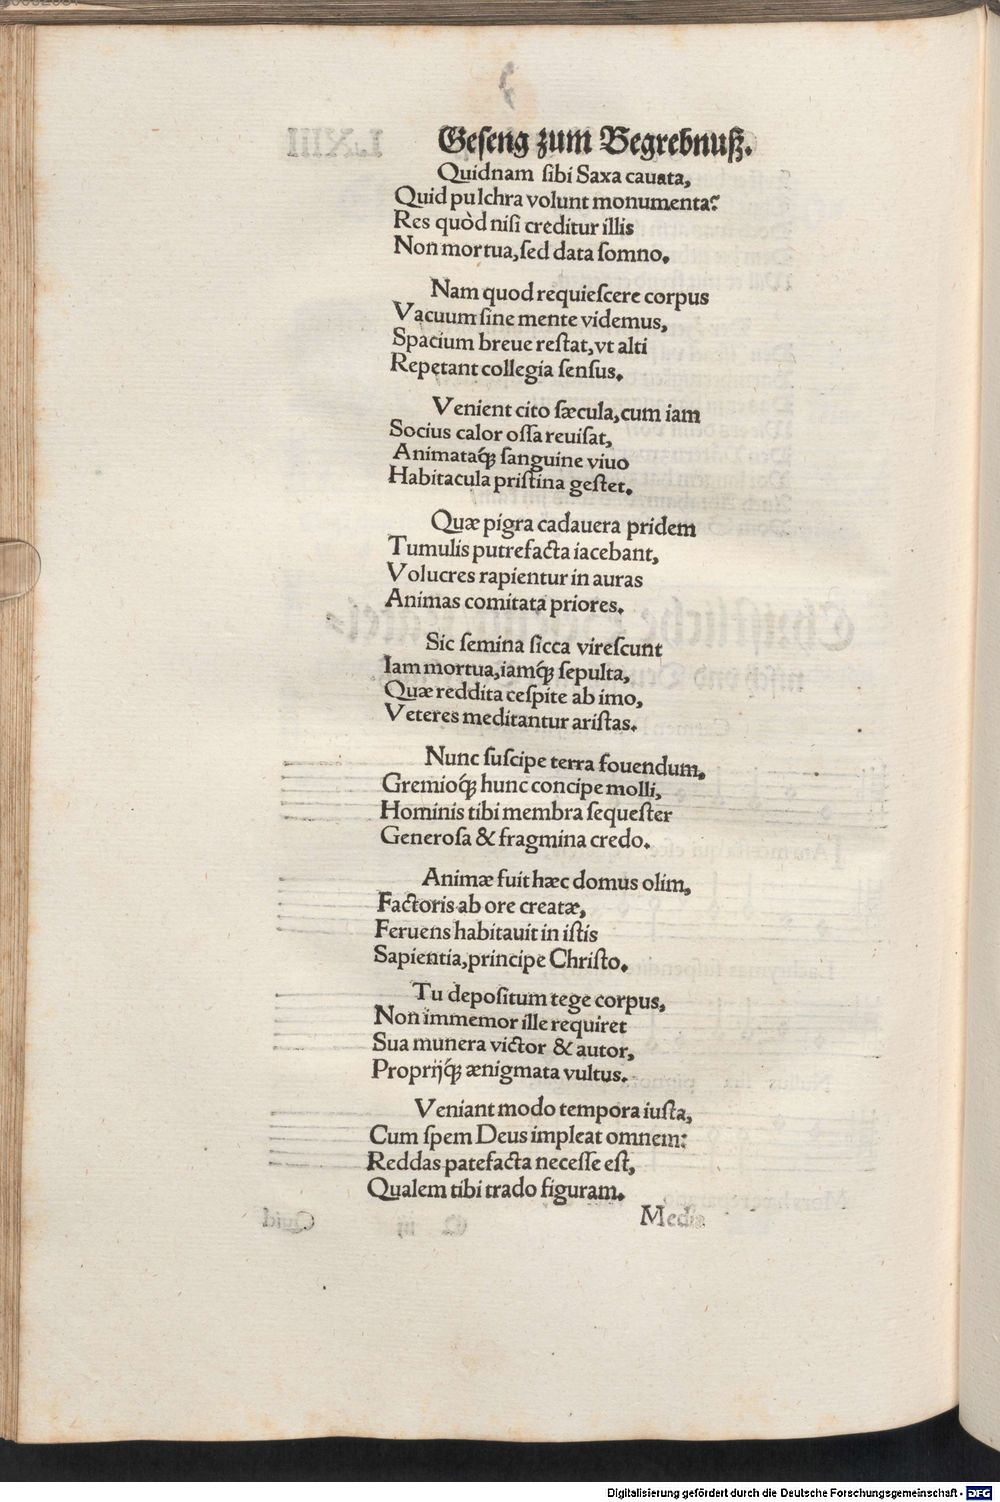 Geſeng zum Begrebnuſz.
Quidnam ſibi Saxa cauata,
Quid pulchra volunt monumenta?
Res quòd niſi creditur illis
Non mortua, ſed data ſomno.
Nam quod requieſcere corpus
Vacuum ſine mente videmus,
Spacium breue reſtat, vt alti
Repetant collegia ſenſus.
Venient cito ſæcula, cum iam
Socius calor oſſa reuiſat,
Animataq́ꝫ ſanguine viuo
Habitacula priſtina geſtet.
Quæ pigra cadauera pridem
Tumulis putrefacta iacebant,
Volucres rapientur in auras
Animas comitata priores.
Sic ſemina ſicca vireſcunt
Iam mortua, iamq́ꝫ ſepulta,
Quæ reddita ceſpite ab imo,
Veteres meditantur ariſtas.
Nunc ſuſcipe terra fouendum,
Gremioq́ꝫ hunc concipe molli,
Hominis tibi membra ſequeſter
Generoſa & fragmina credo.
Animæ fuit hæc domus olim,
Factoris ab ore creatæ,
Feruens habitauit in iſtis
Sapientia, principe Chriſto.
Tu depoſitum tege corpus,
Non immemor ille requiret
Sua munera victor & autor,
Proprijq́ꝫ ænigmata vultus.
Veniant modo tempora iuſta,
Cum ſpem Deus impleat omnem:
Reddas patefacta neceſſe eſt,
Qualem tibi trado figuram.
Media
Digitalisierung gefördert durch die Deutsche Forschungsgemeinschaft - DFG